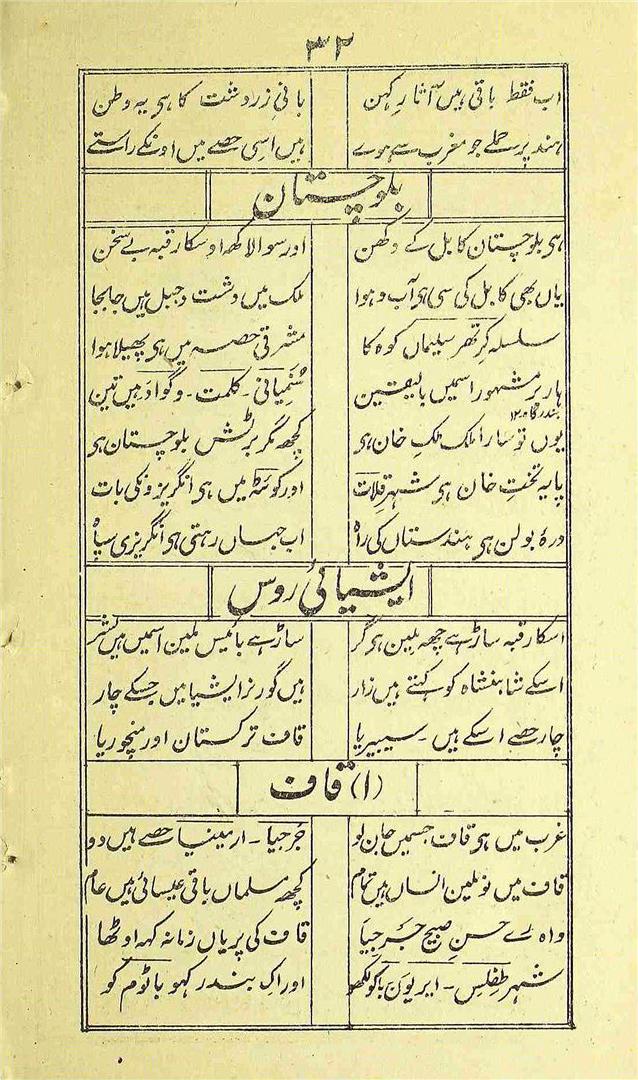 ۳۲
اب فقط باقی ہیں آثارِ کہن بانیِ زردشت کا ہی یہ وطن
ہند پر حملے جو مغرب سے ہوے ہیں اسی حصے میں اونکے راستے
بلوچستان
ہی بلوچستان کابل کے دکھن اور سوا لاکھ اوسکا رقبہ بے سخن
یاں بھی کابل کی سی ہی آب و ہوا ملک میں دشت و جبل ہیں جابجا
سلسلہ کرتھر سلیماں کوہ کا مشرقی حصہ میں ہی پھیلا ہوا
ہاربر مشہور اسمیں بالیقین سُنمیانی ۔ کلمت ۔ و گوادَر ہیں تین
بندرگاہ ۱۲
یوں تو سارا ملک ملکِ خان ہی کچھ مگر برٹش بلوچستان ہی
پایہ تختِ خان ہی شہرِ قلات اور کوئٹہ میں ہی انگریزونکی بات
درۂ بولن ہی ہندستاں کی راہ اب جہاں رہتی ہی انگریزی سپاہ
ایشیائی رُوس
اسکا رقبہ ساڑہے چھہ ملین ہی گر ساڑہے بائیس ملین اسمیں ہیں بشر
اسکے شاہنشاہ کو کہتے ہیں زار ہیں گورنر ایشیا میں جسکے چار
چار حصے اسکے ہیں ۔ سیبیریا قاف ترکستان اور منچوریا
(۱) قاف
غرب میں ہی قاف جسمیں جان لو جُرجیا ۔ ارمینیا حصے ہیں دو
قاف میں نو ملین انساں ہیں تمام کچھ مسلماں باقی عیسائی ہیں عام
واہ رے حسنِ صبیحِ جَرجِیا قاف کی پریاں زمانہ کہہ اوٹھا
شہر طِفلِس ۔ ایریوَن باکو لکھو اور اک بندر کہو باٹوم کو